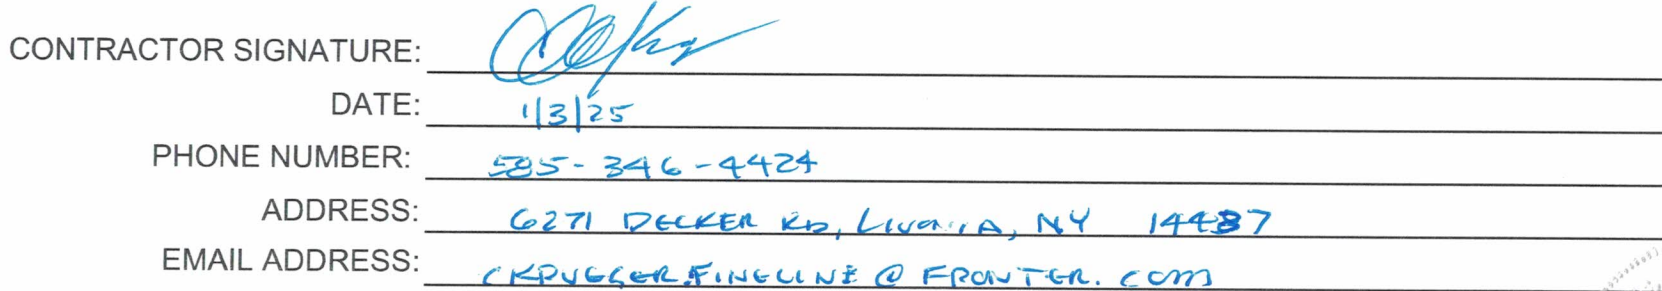 CONTRACTOR SIGNATURE:
DATE: 1/3/25
PHONE NUMBER: 585-346-4424
ADDRESS: 6271 DECKER RD, LIVONIA, NY 14487
EMAIL ADDRESS: @ FRONTER. COM